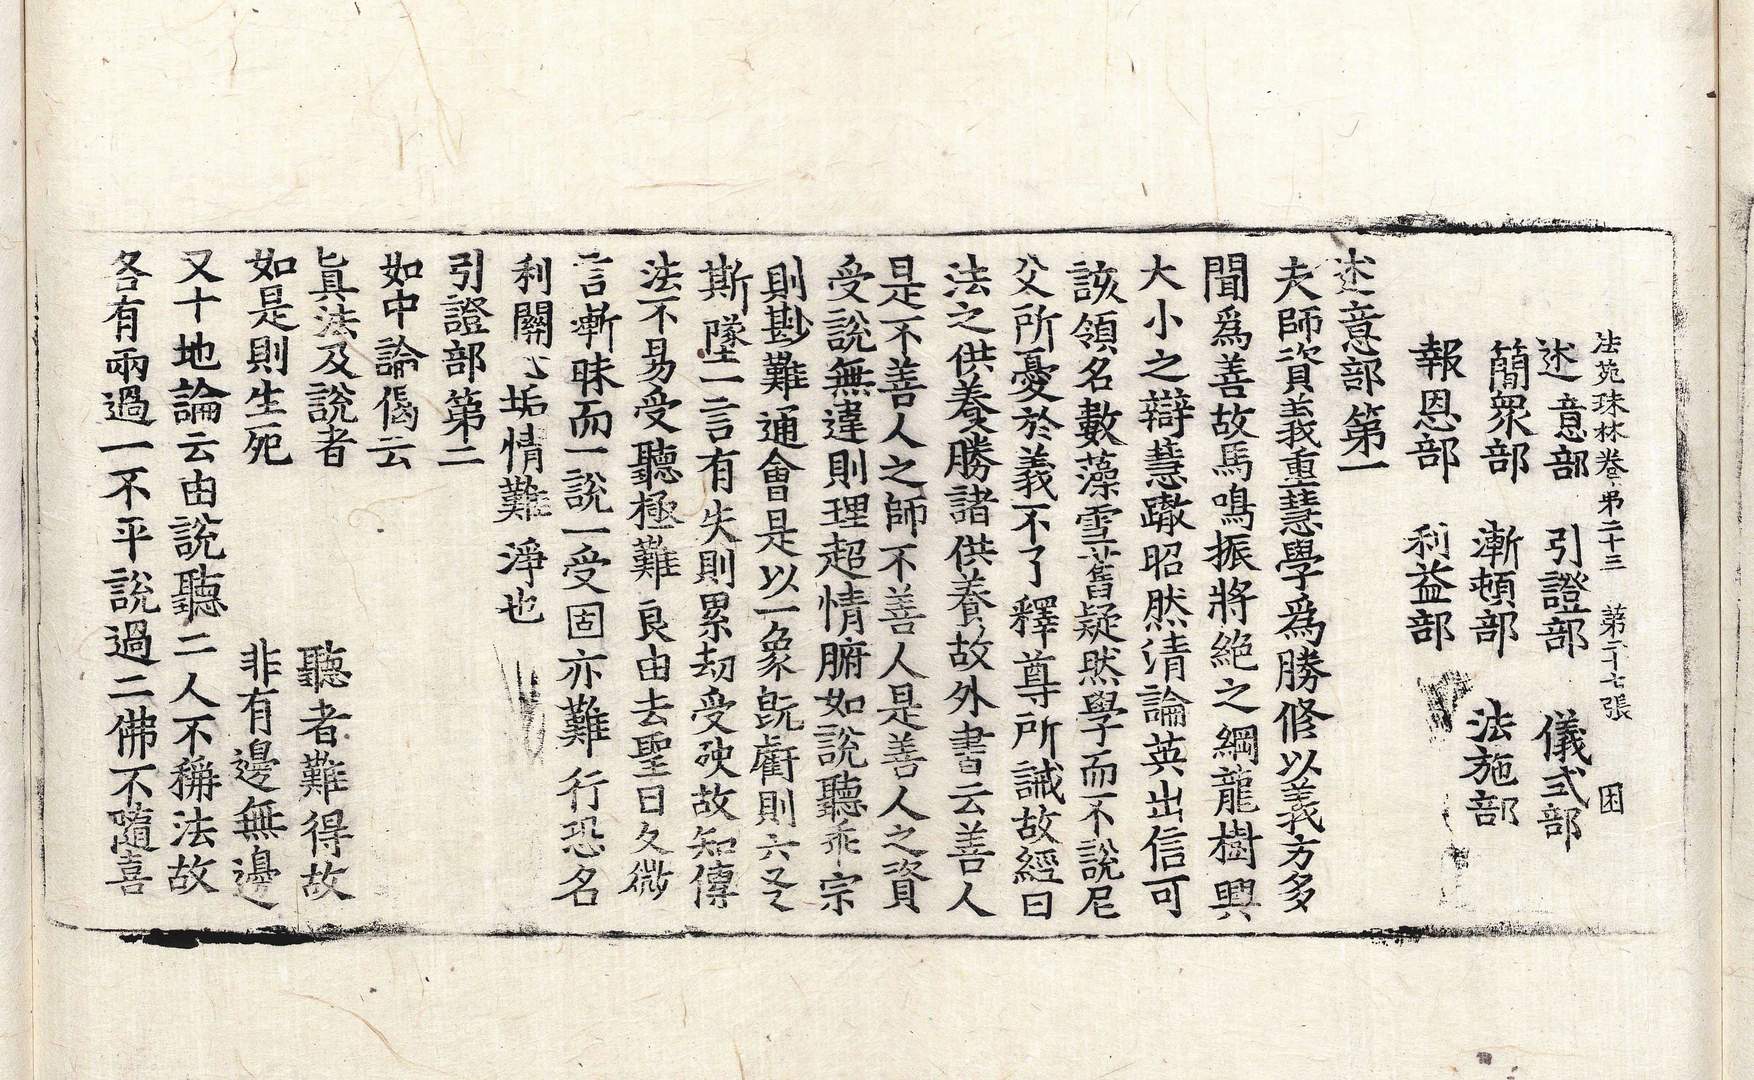 法苑珠林卷第二十三　第二十七張　困
述意部　引證部　儀式部
簡衆部　漸頓部　法施部
報恩部　利益部
述意部第一
夫師資義重慧學爲勝修以義方多
聞爲善故馬鳴振將絶之綱龍樹興
大小之辯慧𨅊昭然清論英出信可
該領名數藻雪舊疑然學而不說尼
父所憂於義不了釋尊所誡故經曰
法之供養勝諸供養故外書云善人
是不善人之師不善人是善人之資
受說無違則理超情腑如說聽乖宗
則尠難通會是以一象旣虧則六爻
斯墜一言有失則累劫受殃故知傳
法不易受聽極難良由去聖日久微
言漸昧而一說一受固亦難行恐名
利關心垢情難淨也
引證部第二
如中論偈云
眞法及說者　聽者難得故
如是則生死　非有邊無邊
又十地論云由說聽二人不稱法故
各有兩過一不平說過二佛不隨喜